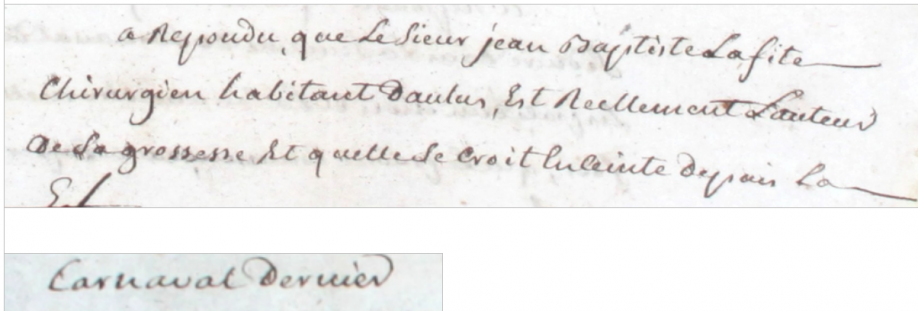 a Repondu, que Le Sieur jean Baptiste Lafite
Chirurgien habitant Daulus, Est Reellement Lauteur
De Sa grossesse Et quelle Se Croit Enceinte depuis La
Carnaval Dernier